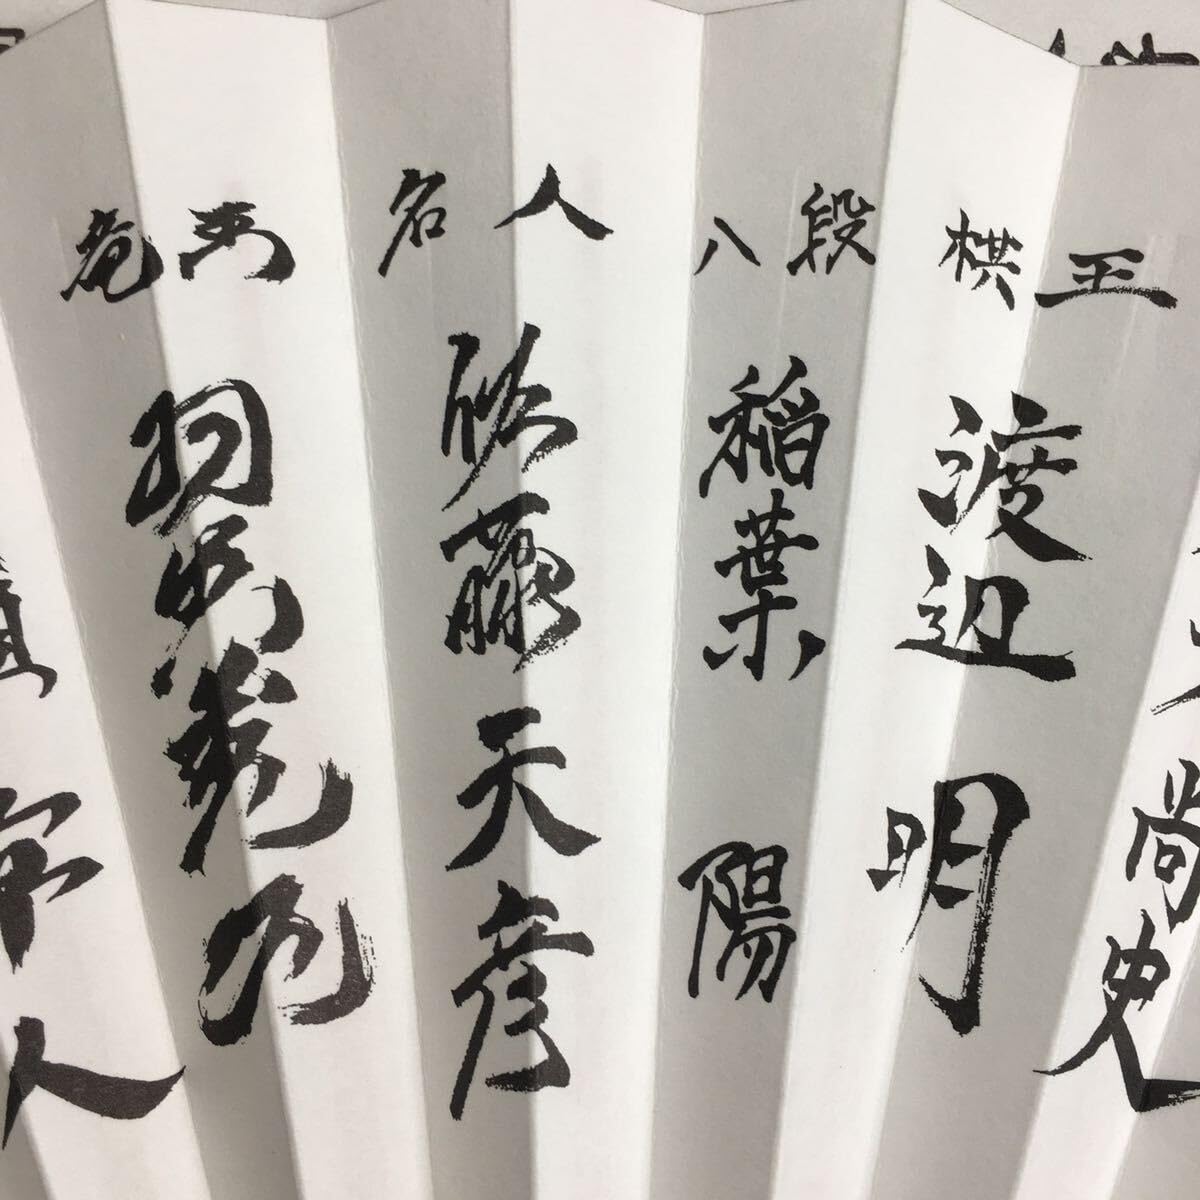 棋王
渡辺明
八段
稲葉陽
名人
佐藤天彦
竜王
羽生善治
尚史
人